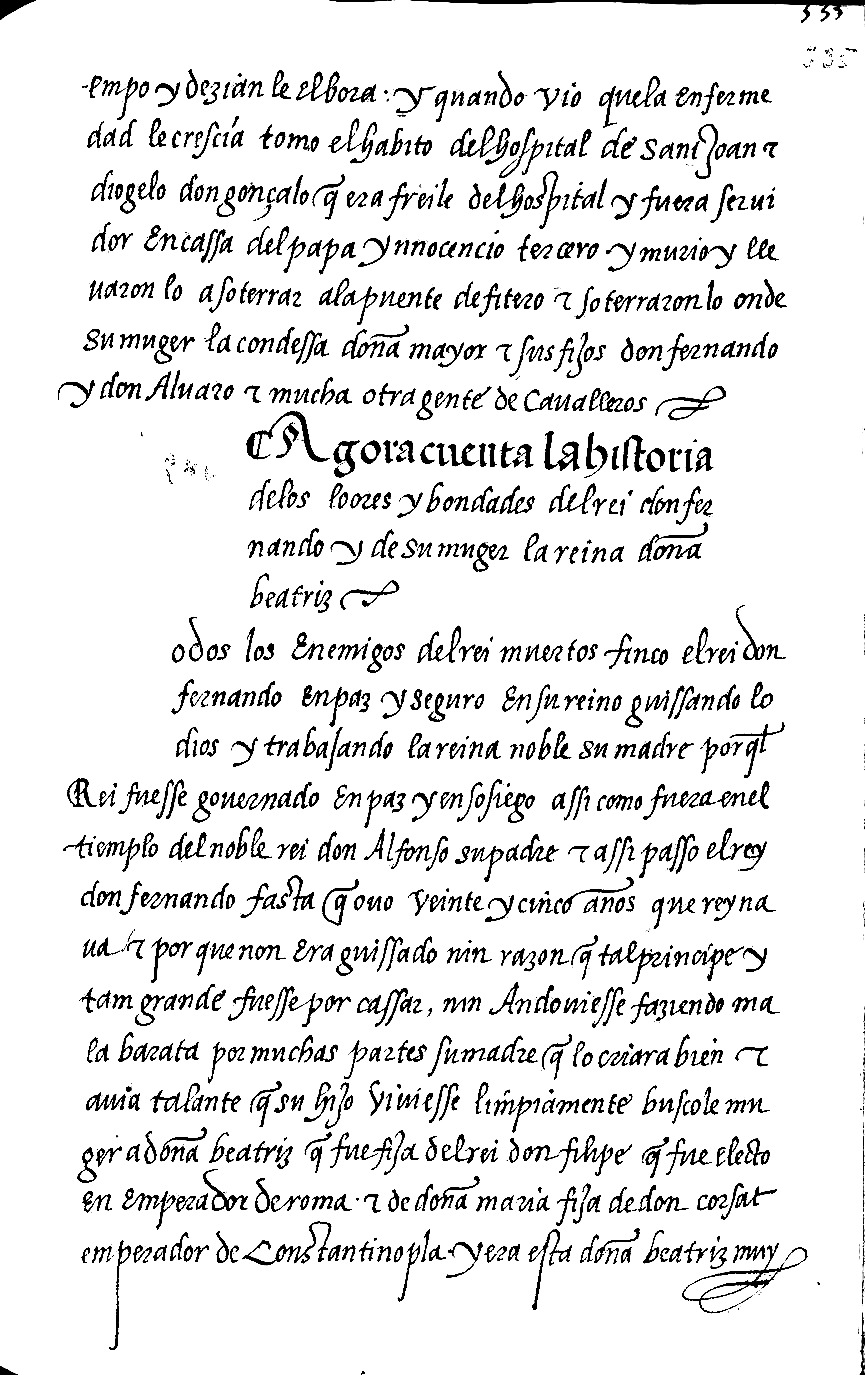 535
535
empo y dezian le elbora : y quando vio quela enferme
dad le crescia tomo el habito del hospital de Sant Joan ⁊
diogelo don gonçalo q̃ era freile del hospital y fuera serui
dor en cassa del papa ynnocencio tercero y murio y lle
uaron lo a soterrar ala puente de fitero ⁊ soterraron lo onde
su muger la condessa doña mayor ⁊ sus fijos don fernando
y don Alvaro ⁊ mucha otra gente de Cavalleros
Agora cuenta la historia
delos loores y bondades del rei don fer
nando y de su muger la reina doña
beatriz
odos los enemigos del rei muertos finco el rei don
fernando en paz y seguro en su reino guissando lo
dios y trabajando la reina noble su madre porq̃l
Rei fuesse governado en paz y en sosiego assi como fuera enel
tiemplo del noble rei don Alfonso su padre ⁊ assi passo el rey
don fernando fasta q̃ ouo veinte y cinco años que reyna
ua ⁊ por que non era guissado nin razon q̃ tal principe y
tam grande fuesse por cassar, nin Andouiesse faziendo ma
la barata por muchas partes su madre q̃ lo criara bien ⁊
auia talante q̃ su hijo viviesse limpiamente buscole mu
ger a doña beatriz q̃ fue fija del rei don filipe q̃ fue electo
en emperador de roma ⁊ de doña maria fija de don corsat
emperador de Constantinopla y era esta doña beatriz muy